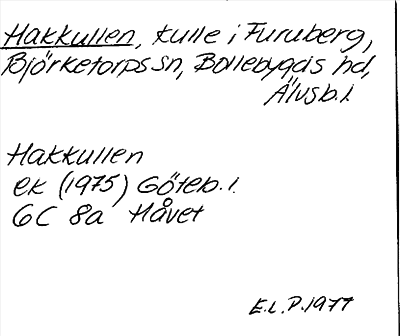 Hakkullen, kulle i Furuberg,
Björketorps sn, Bollebygds hd,
Älvsb. l.
Hakkullen
ek (1975) Göteb. l.
6C 8a Håvet
E.L.P. 1977